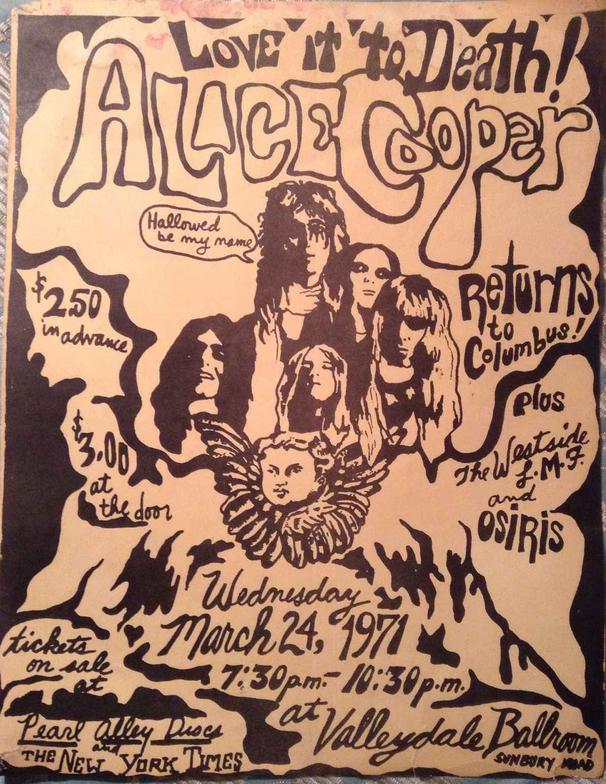 Love it to Death!
Alice Cooper
Hallowed
be my name
$2.50
in advance
Returns
to
Columbus!
plus
The Westside
L.M.F.
and
OSIRIS
$3.00
at
the door
Wednesday
March 24, 1971
7:30 p.m.- 10:30 p.m.
at Valleydale Ballroom
SUNBURY ROAD
tickets
on sale
at
Pearl Alley Discs
and
THE NEW YORK TIMES